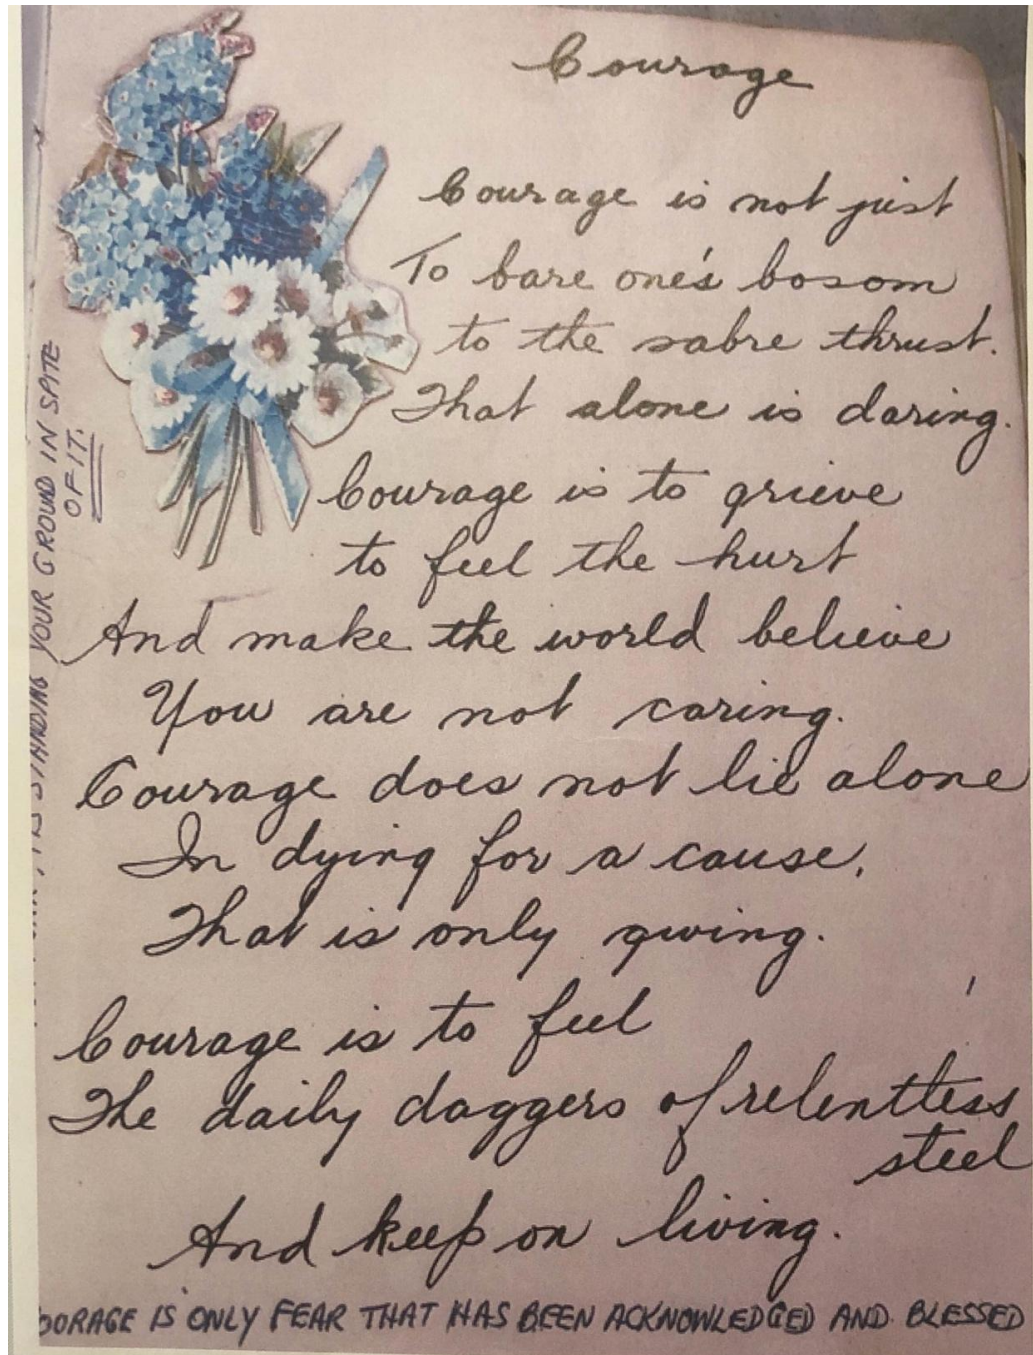 Courage
Courage is not just
To bare one's bosom
to the sabre thrust.
That alone is daring.
Courage is to grieve
to feel the hurt
And make the world believe
You are not caring.
Courage does not lie alone
In dying for a cause.
That is only giving.
Courage is to feel
The daily daggers of relentless
steel
And keep on living.
OURAGE IS ONLY FEAR THAT HAS BEEN ACKNOWLEDGED AND BLESSED
STANDING YOUR GROUND IN SPITE
OF IT.